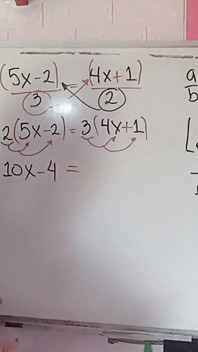 (5x-2) = (4x+1)
3 2
2(5x-2) = 3(4x+1)
10x-4 =
a
b